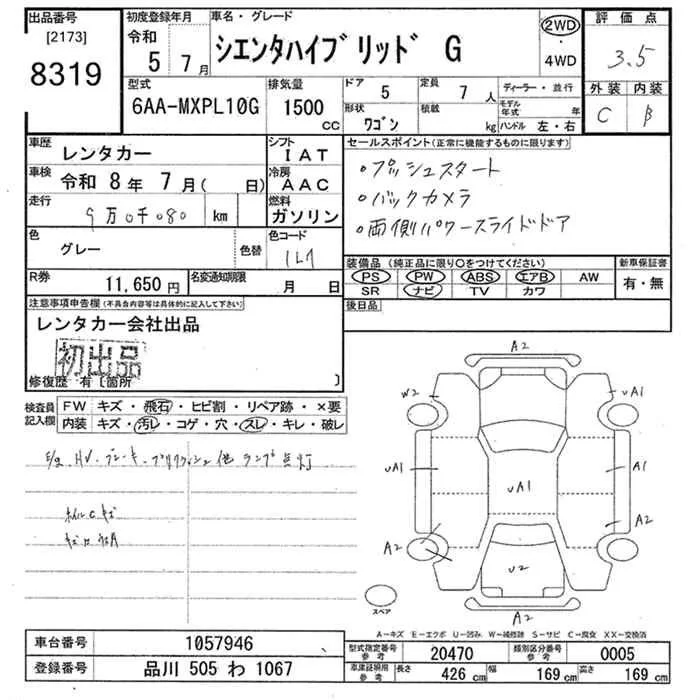 出品番号
[2173]
8319
初度登録年月
令和
5 7月
車名・グレード
シエンタハイブリッド G
2WD
・
4WD
評価点
3.5
外装 内装
C B
型式
6AA-MXPL10G
排気量
1500
CC
ドア 5
定員 7人
形状
ワゴン
積載 kg
ディーラー・並行
モデル年式 年
ハンドル 左・右
車歴
レンタカー
シフト
IAT
車検
令和 8年 7月( 日)
冷房
AAC
走行
9万0千080 km
燃料
ガソリン
色
グレー
色替
色コード
1L7
R券 11,650円
名変通知期限 月 日
セールスポイント(正常に機能するものに限ります)
・プッシュスタート
・バックカメラ
・両側パワースライドドア
装備品 (純正品に限り○をつけてください)
PS PW ABS エアB AW
SR ナビ TV カワ
新車保証書
有・無
後日品
注意事項申告欄(不具合内容等は具体的に記入して下さい)
レンタカー会社出品
初出品
修復歴 有 [箇所 ]
検査員
記入欄
FW キズ・飛石・ヒビ割・リペア跡・×要
内装 キズ・汚レ・コゲ・穴・スレ・キレ・破レ
ランプ点灯
A2
W2
UA1
UA1
UA1
A1
A2
A2
U2
A2
スペア
A−キズ E−エクボ U−凹ミ W−補修跡 S−サビ C−腐食 XX−交換済
車台番号 1057946
登録番号 品川 505 わ 1067
型式指定番号
参考
20470
類別区分番号
参考
0005
車庫証明用
参考
長さ 426 cm 幅 169 cm 高さ 169 cm